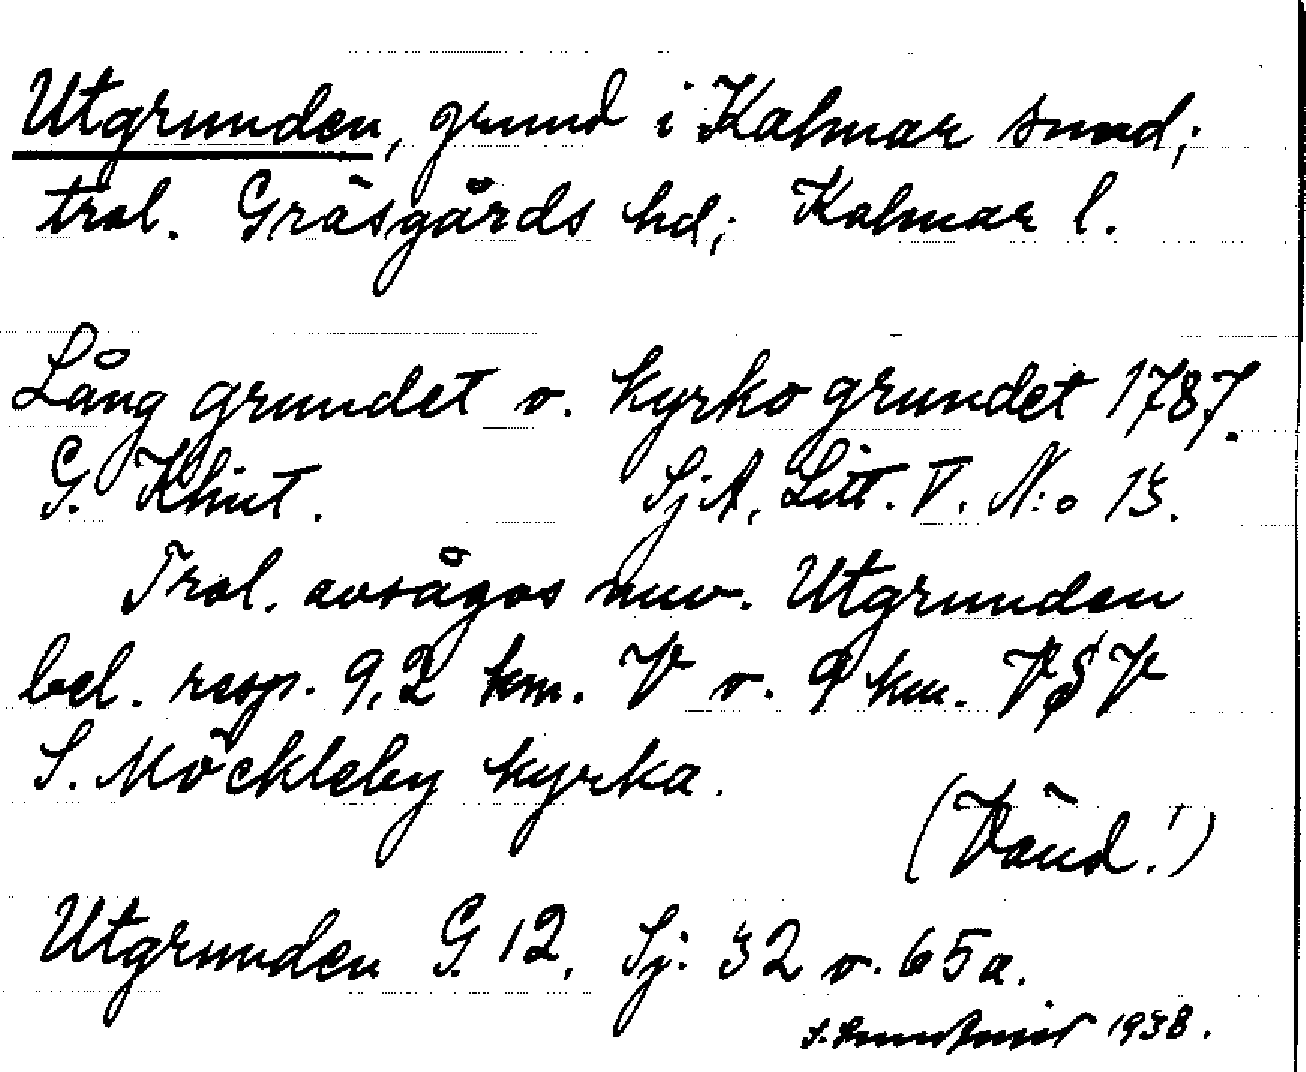 Utgrunden, grund i Kalmar sund;
trol. Gräsgårds hd; Kalmar l.
Lång grundet o. Kyrko grundet 1787.
G. Klint. SjA, Litt. V. N:o 13.
Trol. avsågos nuv. Utgrunden
bel. resp. 9,2 km. V o. 9 km. VSV
S. Möckleby kyrka.
(Vänd!)
Utgrunden G. 12, Sj: 32 o. 65a.
1938.